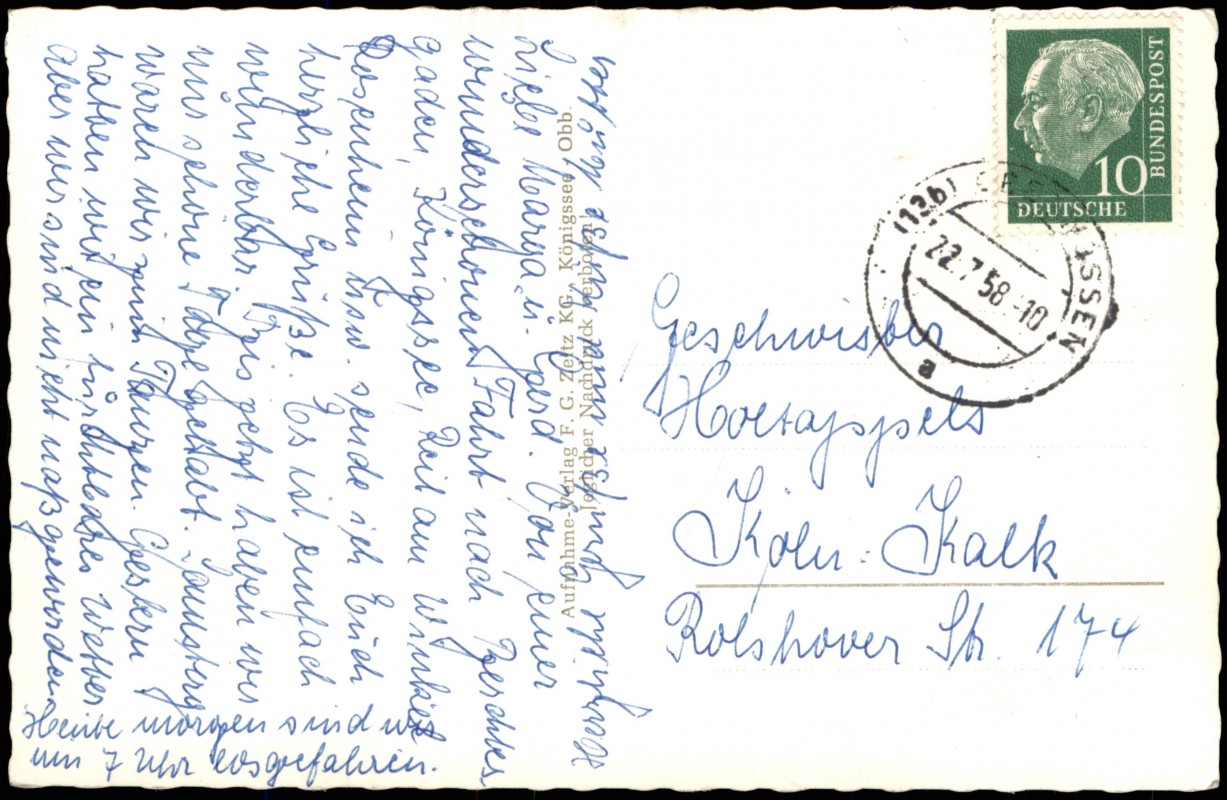 Liebe Marga u. Gerd. Von einer
wunderschönen Fahrt nach Berchtes-
gaden, Königssee, Reit am Winkel
Rosenheim usw. sende ich Euch
herzliche Grüße. Es ist einfach
wunderbar. Bis jetzt haben wir
nur schöne Tage gehabt. Samstag
waren wir zum Tanzen. Gestern
hatten wir ein fürchtbares Wetter
aber wir sind nicht naß geworden.
Heute morgen sind wir
um 7 Uhr losgefahren.
Herzliche Grüße
Aufnahme-Verlag F. G. Zeitz KG, Königssee / Obb.
Jeglicher Nachdruck verboten!
10
BUNDESPOST
DEUTSCHE
(13b)
22.7.58.-10
a
Geschwister
Holtappels
Köln-Kalk
Rolshover Str. 174